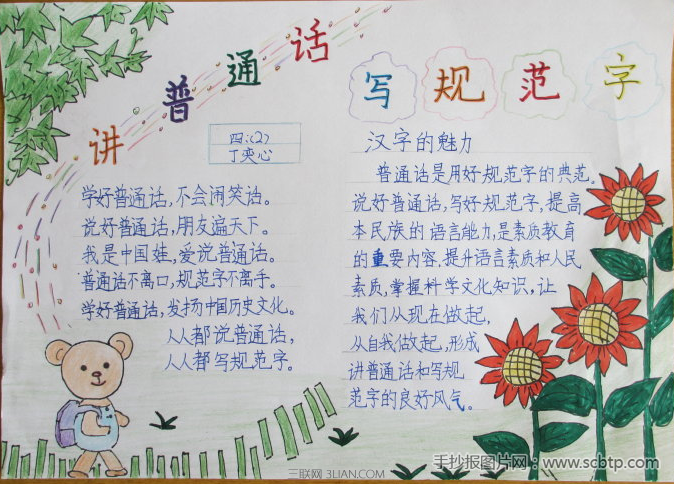 讲普通话
写规范字
四:(2)
丁奕心
学好普通话,不会闹笑话。
说好普通话,朋友遍天下。
我是中国娃,爱说普通话。
普通话不离口,规范字不离手。
学好普通话,发扬中国历史文化。
人人都说普通话,
人人都写规范字。
汉字的魅力
普通话是用好规范字的典范。
说好普通话,写好规范字,提高
本民族的语言能力,是素质教育
的重要内容,提升语言素质和人民
素质,掌握科学文化知识,让
我们从现在做起,
从自我做起,形成
讲普通话和写规
范字的良好风气。
三联网 3LIAN.COM
手抄报图片网:www.scbtp.com